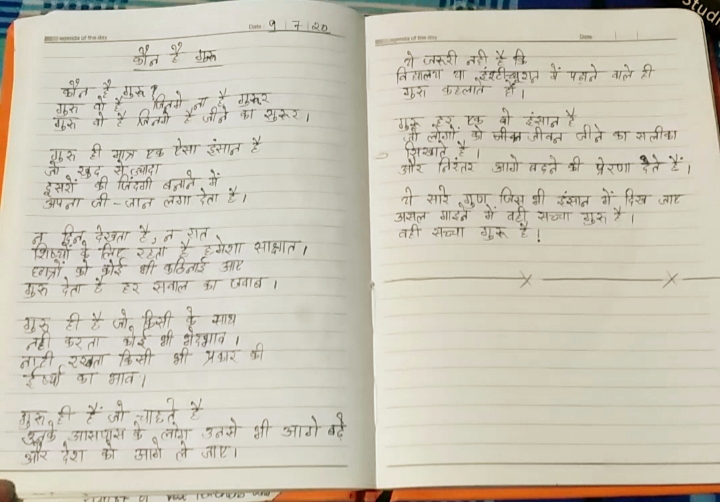 Date 9 | 7 | 20
कौन है गुरु
कौन है गुरु ?
गुरु वो है जिसमे ना है गुरूर
गुरु वो है जिसमे है जीने का सुरूर।
गुरु ही मात्र एक ऐसा इंसान है
जो खुद से ज्यादा
दूसरों की जिंदगी बनाने में
अपना जी - जान लगा देता है।
न दिन देखता है, न रात
शिष्यों के लिए रहता है हमेशा साक्षात।
छात्रों को कोई भी कठिनाई आए
गुरु देता है हर सवाल का जवाब।
गुरु ही है जो किसी के साथ
नहीं करता कोई भी भेदभाव।
नाही रखता किसी भी प्रकार की
ईर्ष्या का भाव।
गुरु ही हैं जो चाहते है
उनके आसपास के लोग उनसे भी आगे बढ़े
और देश को आगे ले जाए।
Date
ये जरूरी नही है कि
विद्यालय या इंस्टीट्यूशन में पढ़ाने वाले ही
गुरु कहलाते है।
गुरु हर एक वो इंसान है
जो लोगों को जीवन जीने का सलीका
सिखाते है।
और निरंतर आगे बढ़ने की प्रेरणा देते हैं।
ये सारे गुण जिस भी इंसान में दिख जाए
असल माइने में वही सच्चा गुरु है।
वही सच्चा गुरु है!
Stud